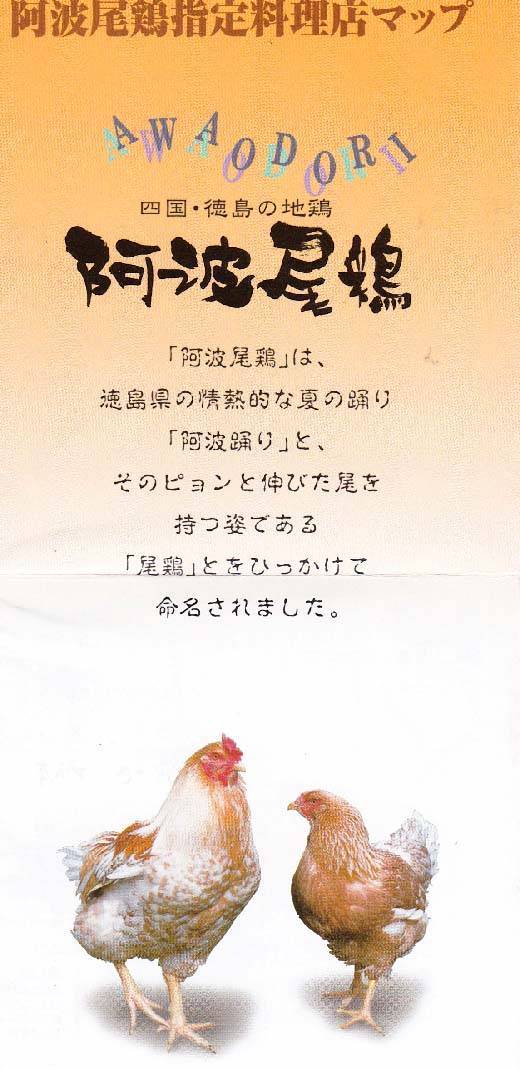 阿波尾鶏指定料理店マップ
AWAODORI
四国・徳島の地鶏
阿波尾鶏
「阿波尾鶏」は、
徳島県の情熱的な夏の踊り
「阿波踊り」と、
そのピョンと伸びた尾を
持つ姿である
「尾鶏」とをひっかけて
命名されました。